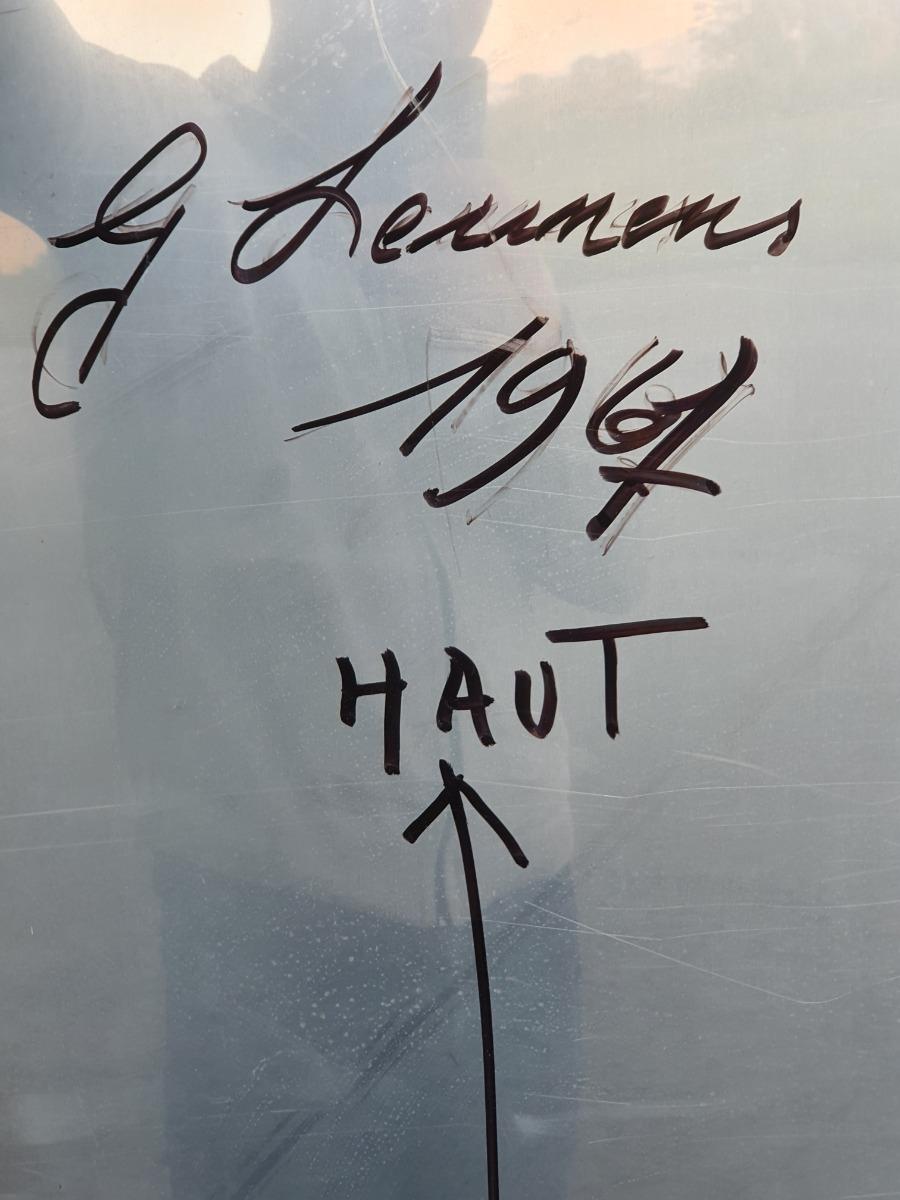 G Lemmens
1967
HAUT